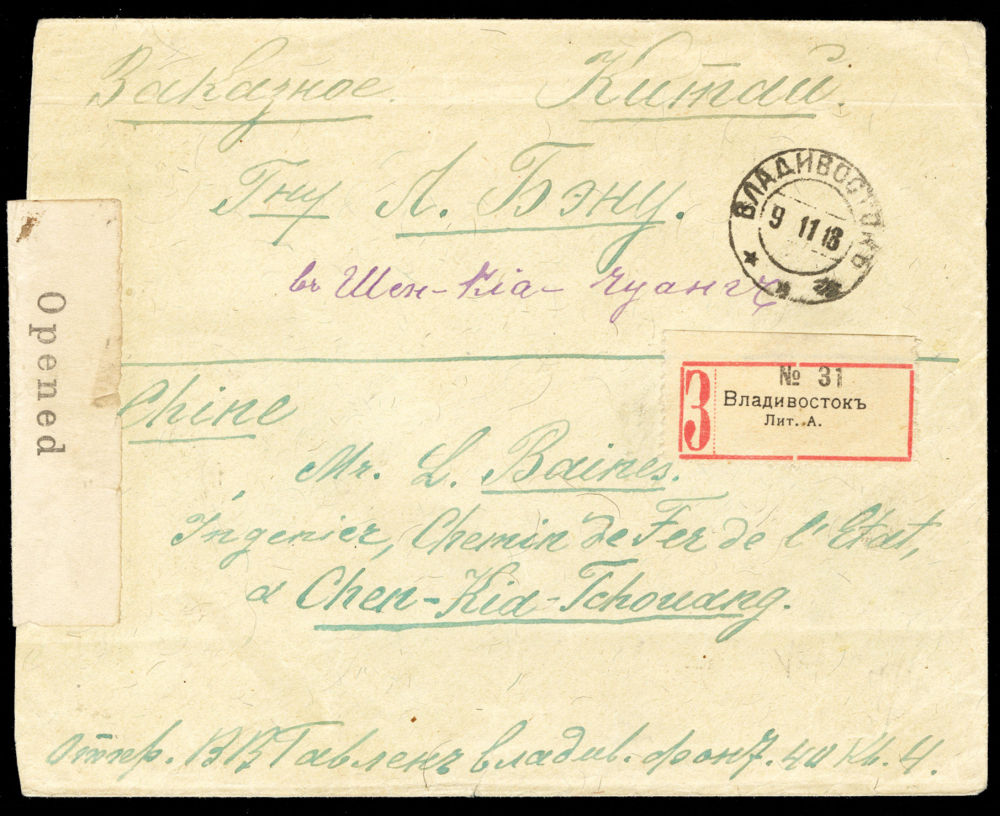 Заказное. Китай.
Гну Л. Бэну.
въ Шен-Кіа-Чуангъ
ВЛАДИВОСТОКЪ
9 11 18
Opened
№ 31
З
Владивостокъ
Лит. А.
Chine
Mr. L. Baines.
Ingenier, Chemin de Fer de l'Etat,
a Chen-Kia-Tchouang.
Отпр. ВВ Гавленъ владив. 40 Кв. 4.